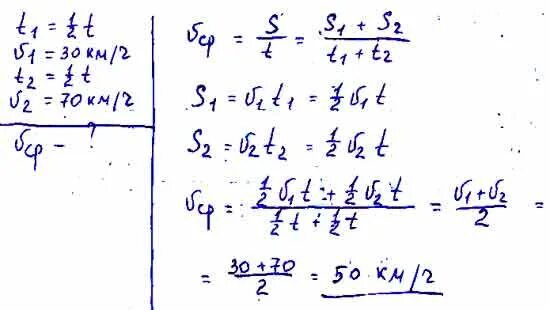 t₁ = ½ t
υ₁ = 30 км/ч
t₂ = ½ t
υ₂ = 70 км/ч
υср - ?
υср = S/t = (S₁ + S₂)/(t₁ + t₂)
S₁ = υ₁ t₁ = ½ υ₁ t
S₂ = υ₂ t₂ = ½ υ₂ t
υср = (½ υ₁ t + ½ υ₂ t)/(½ t + ½ t) = (υ₁ + υ₂)/2 =
= (30 + 70)/2 = 50 км/ч